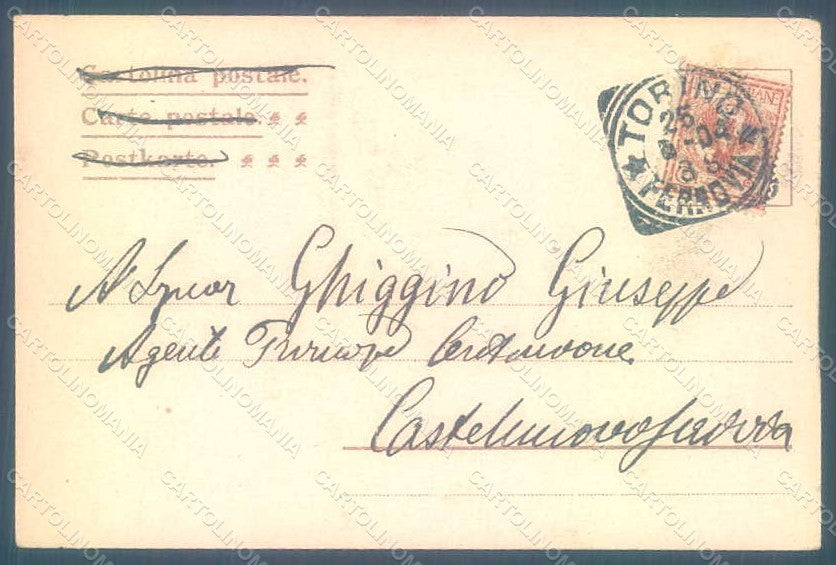 Cartolina postale.
Carte postale
Postkarte.
TORINO
FERROVIA
Al Signor Ghiggino Giuseppe
Agente
Castelnuovo Scrivia
CARTOLINOMANIA